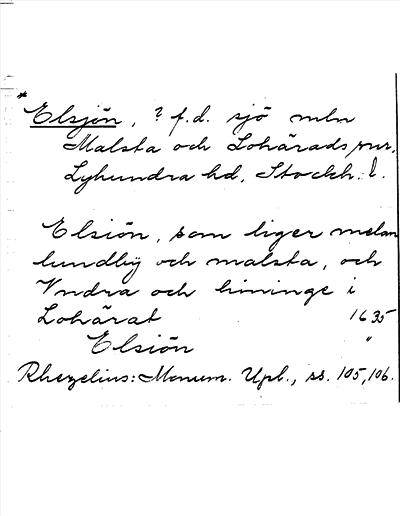 * Elsjön, ? f.d. sjö mln
Malsta och Lohärads snr,
Lyhundra hd, Stockh. l.
Elsiön, som liger melan
lundby och malsta, och
Vndra och himinge i
Lohärat 1635
Elsiön "
Rhezelius: Monum. Upl., ss. 105, 106.